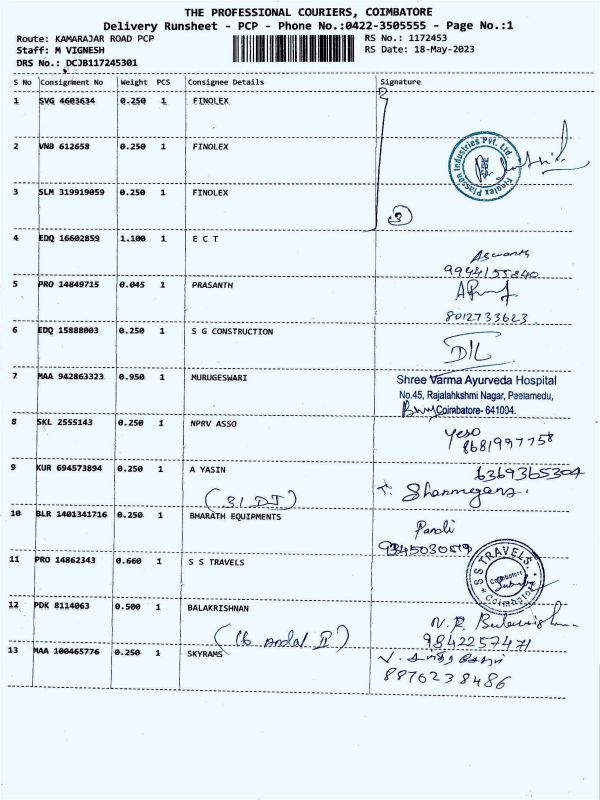 THE PROFESSIONAL COURIERS, COIMBATORE
Delivery Runsheet - PCP - Phone No.:0422-3505555 - Page No.:1
Route: KAMARAJAR ROAD PCP RS No.: 1172453
Staff: M VIGNESH RS Date: 18-May-2023
DRS No.: DCJB117245301
S No Consignment No Weight PCS Consignee Details Signature
1 SVG 4603634 0.250 1 FINOLEX
2 VNB 612658 0.250 1 FINOLEX
Finolex Plasson Industries Pvt. Ltd.
3 SLM 319919059 0.250 1 FINOLEX
3
4 EDQ 16602859 1.100 1 E C T
Aswanth
9944155840
5 PRO 14849715 0.045 1 PRASANTH
8012733623
6 EDQ 15888003 0.250 1 S G CONSTRUCTION
7 MAA 942863323 0.950 1 MURUGESWARI
Shree Varma Ayurveda Hospital
No.45, Rajalahkshmi Nagar, Peelamedu,
Coimbatore- 641004.
8 SKL 2555143 0.250 1 NPRV ASSO
8681997758
9 KUR 694573894 0.250 1 A YASIN
6369365304
(31.DJ)
10 BLR 1401341716 0.250 1 BHARATH EQUIPMENTS
9345030519
11 PRO 14862343 0.660 1 S S TRAVELS
S S TRAVELS.
Coimbatore
12 PDK 8114063 0.500 1 BALAKRISHNAN
9842257471
13 MAA 100465776 0.250 1 SKYRAMS
8876238486